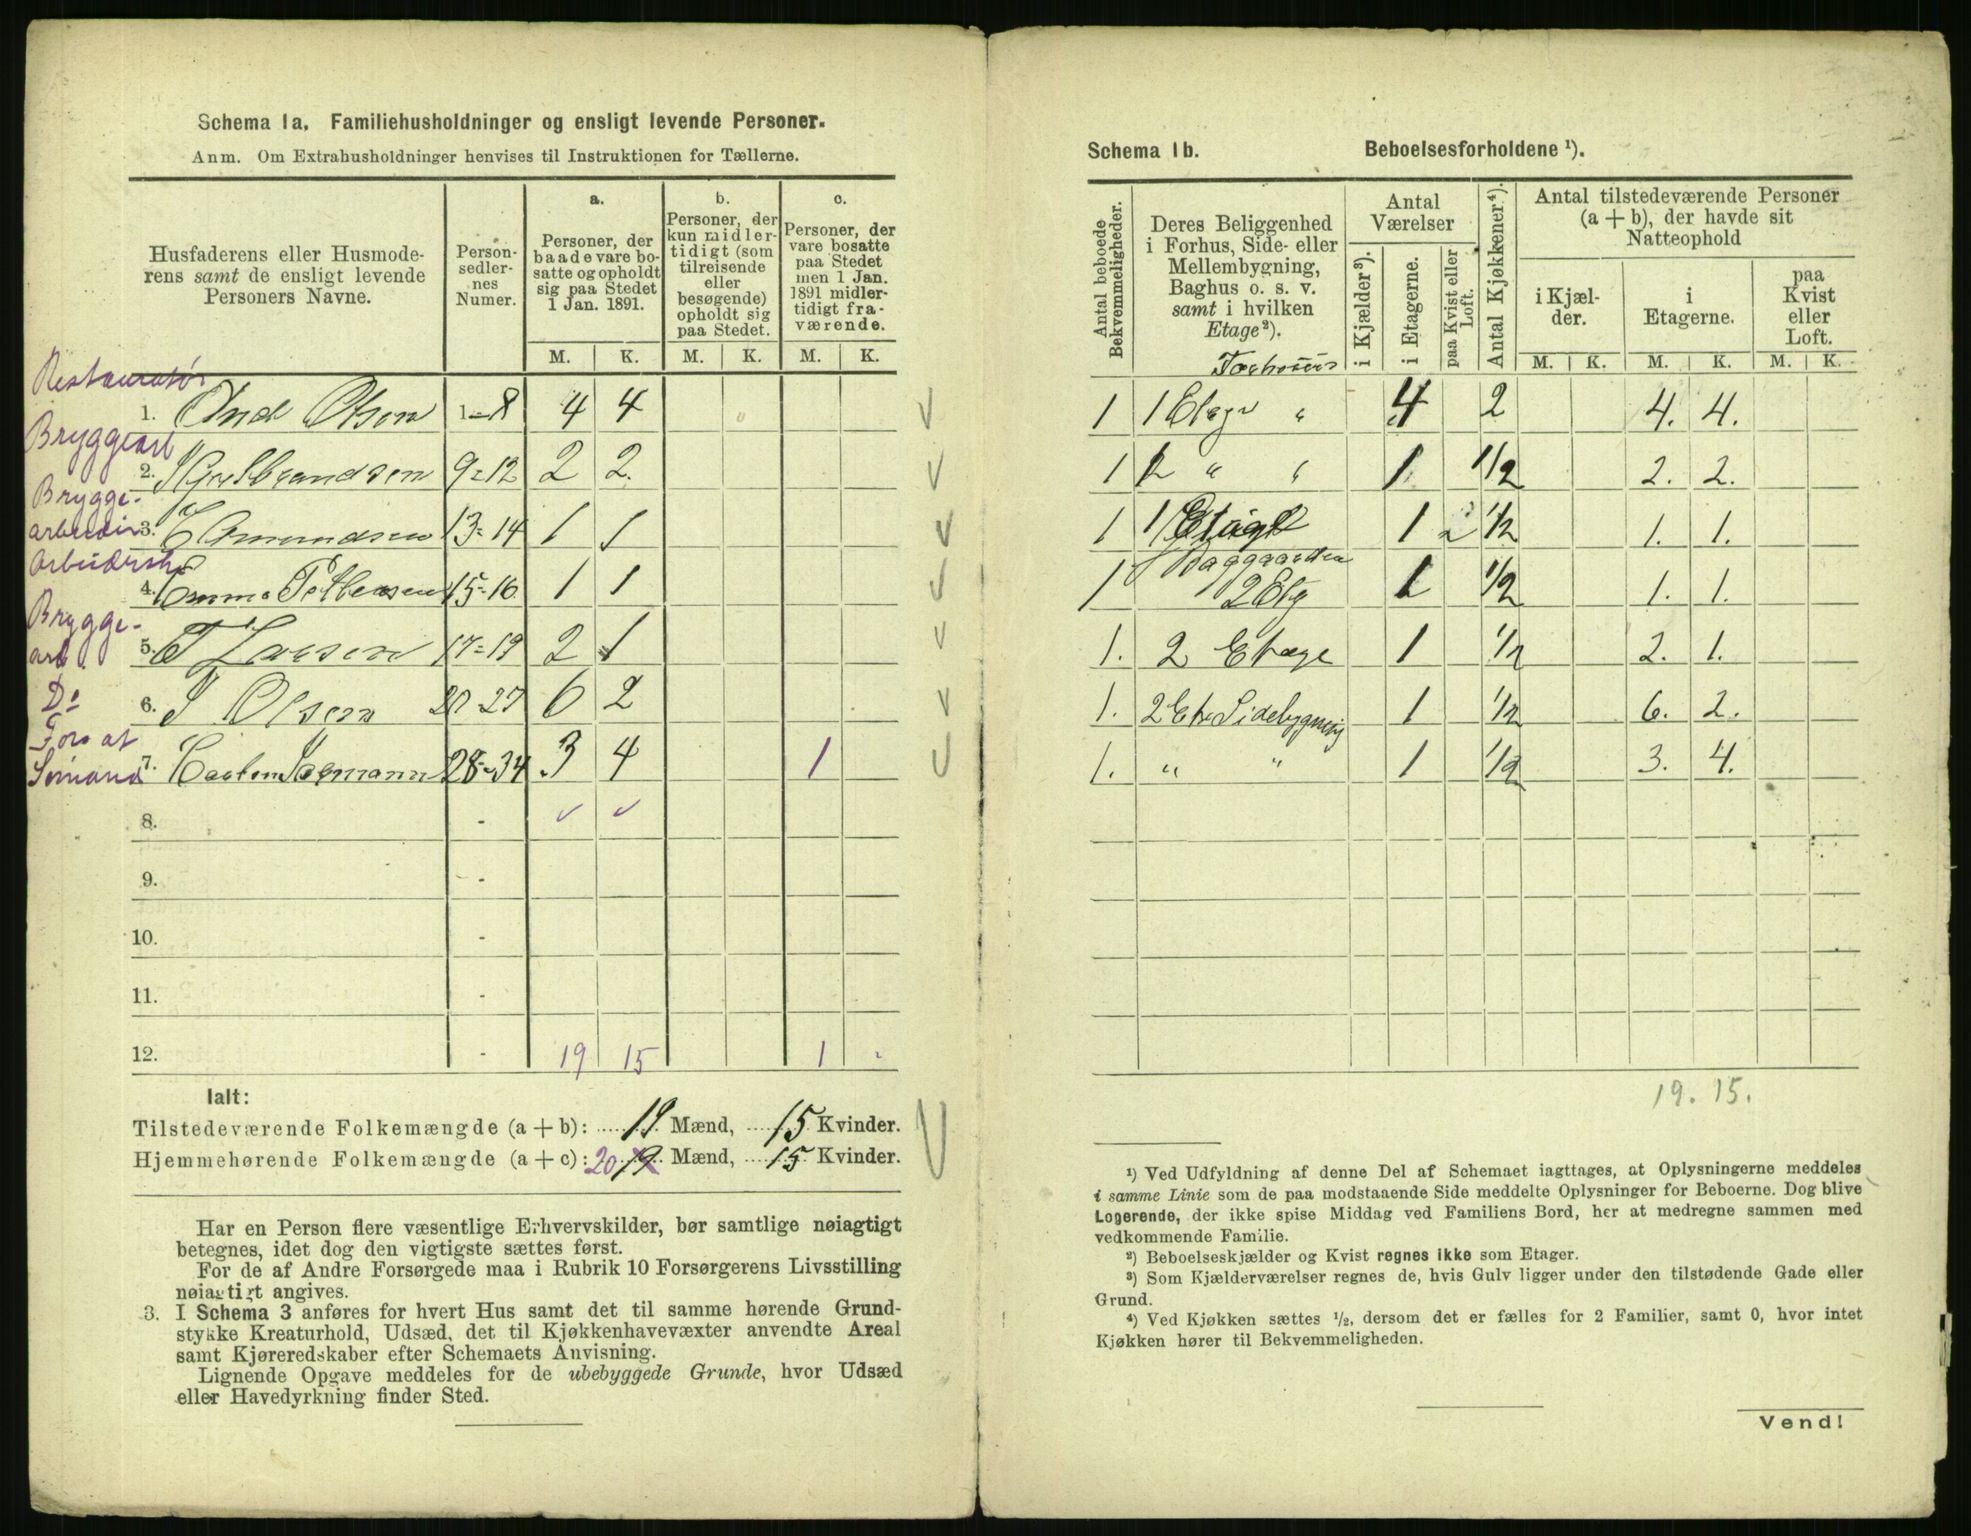 Schema 1a. Familiehusholdninger og ensligt levende Personer.
Anm. Om Extrahusholdninger henvises til Instruktionen for Tællerne.
Husfaderens eller Husmoderens samt de ensligt levende Personers Navne.
Personsedlernes Numer.
a. Personer, der baade vare bosatte og opholdt sig paa Stedet 1 Jan. 1891.
b. Personer, der kun midlertidigt (som tilreisende eller besøgende) opholdt sig paa Stedet.
c. Personer, der vare bosatte paa Stedet men 1 Jan. 1891 midlertidigt fraværende.
M. K. M. K. M. K.
Restauratør
1. And Olsen 1-8 4 4
Bryggearb
2. 9-12 2 2.
Brygge-
arbeider
3. E Amundsen 13-14 1 1
4. Emma Pettersen 15-16 1 1
Brygge-
arb.
5. T Larsen 17-19 2 1
Do
6. J Olsen 20-27 6 2
Sømand
7. 28-34 3 4 1
8. -
9. -
10. -
11. -
12. - 19 15 1 -
Ialt:
Tilstedeværende Folkemængde (a + b): 19 Mænd, 15 Kvinder.
Hjemmehørende Folkemængde (a + c): 20 19 Mænd, 15 Kvinder.
Har en Person flere væsentlige Erhvervskilder, bør samtlige nøiagtigt
betegnes, idet dog den vigtigste sættes først.
For de af Andre Forsørgede maa i Rubrik 10 Forsørgerens Livsstilling
nøiagtigt angives.
3. I Schema 3 anføres for hvert Hus samt det til samme hørende Grund-
stykke Kreaturhold, Udsæd, det til Kjøkkenhavevæxter anvendte Areal
samt Kjøreredskaber efter Schemaets Anvisning.
Lignende Opgave meddeles for de ubebyggede Grunde, hvor Udsæd
eller Havedyrkning finder Sted.
Schema 1b. Beboelsesforholdene ¹).
Antal beboede Bekvemmeligheder.
Deres Beliggenhed i Forhus, Side- eller Mellembygning, Baghus o. s. v. samt i hvilken Etage²).
Antal Værelser
i Kjælder ³).
i Etagerne.
paa Kvist eller Loft.
Antal Kjøkkener⁴).
Antal tilstedeværende Personer (a + b), der havde sit Natteophold
i Kjælder.
i Etagerne.
paa Kvist eller Loft.
M. K. M. K. M. K.
1 1 Etage " 4 2 4. 4.
1 " " 1 1/2 2. 2.
1 1 Etage 1 1/2 1. 1.
Baggaarden
1 2 Etg 1 1/2 1. 1.
1. 2 Etage 1 1/2 2. 1.
1. 2 Et Sidebygning 1 1/2 6. 2.
1. " " 1 1/2 3. 4.
19. 15.
¹) Ved Udfyldning af denne Del af Schemaet iagttages, at Oplysningerne meddeles
i samme Linie som de paa modstaaende Side meddelte Oplysninger for Beboerne. Dog blive
Logerende, der ikke spise Middag ved Familiens Bord, her at medregne sammen med
vedkommende Familie.
²) Beboelseskjælder og Kvist regnes ikke som Etager.
³) Som Kjælderværelser regnes de, hvis Gulv ligger under den tilstødende Gade eller
Grund.
⁴) Ved Kjøkken sættes ¹/₂, dersom det er fælles for 2 Familier, samt 0, hvor intet
Kjøkken hører til Bekvemmeligheden.
Vend!